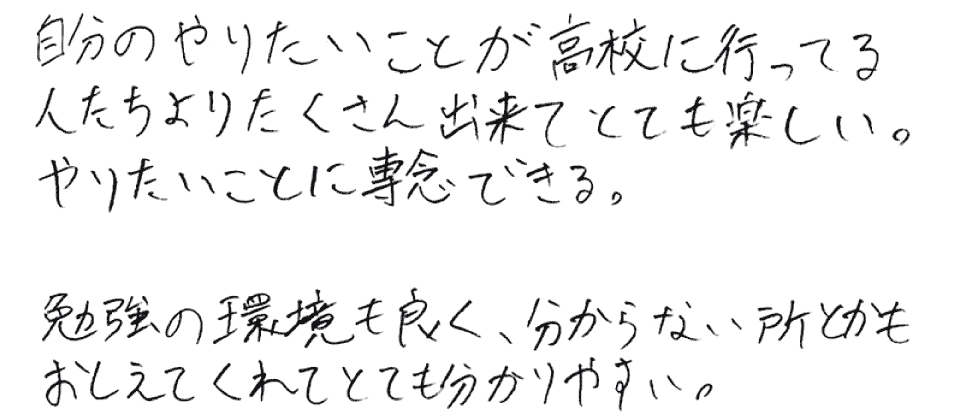 自分のやりたいことが高校に行ってる
人たちよりたくさん出来てとても楽しい。
やりたいことに専念できる。
勉強の環境も良く、分からない所とかも
おしえてくれてとても分かりやすい。